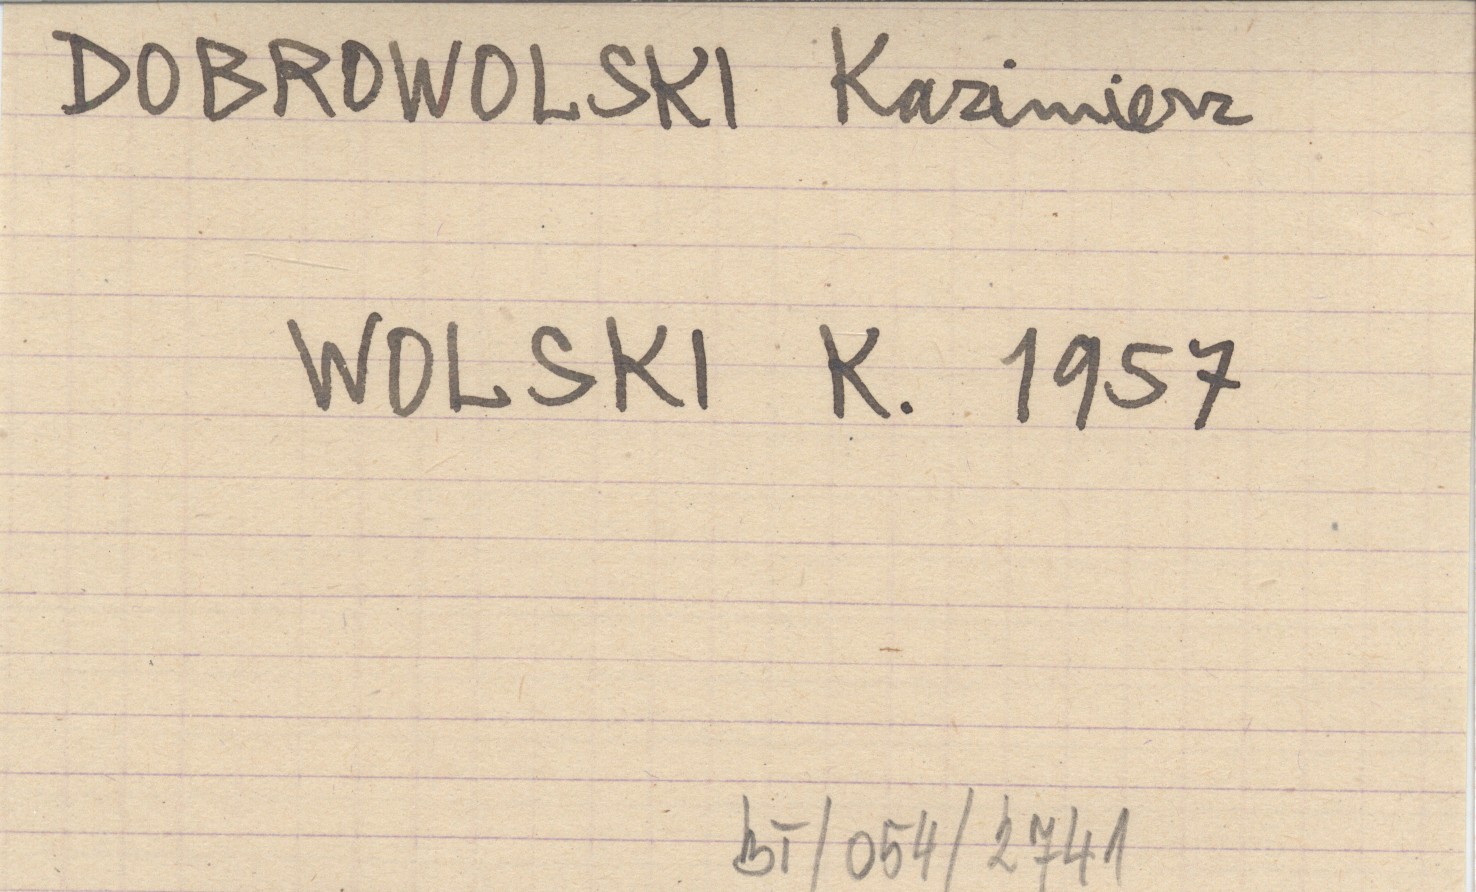 DOBROWOLSKI Kazimierz
WOLSKI K. 1957
bI/054/2741